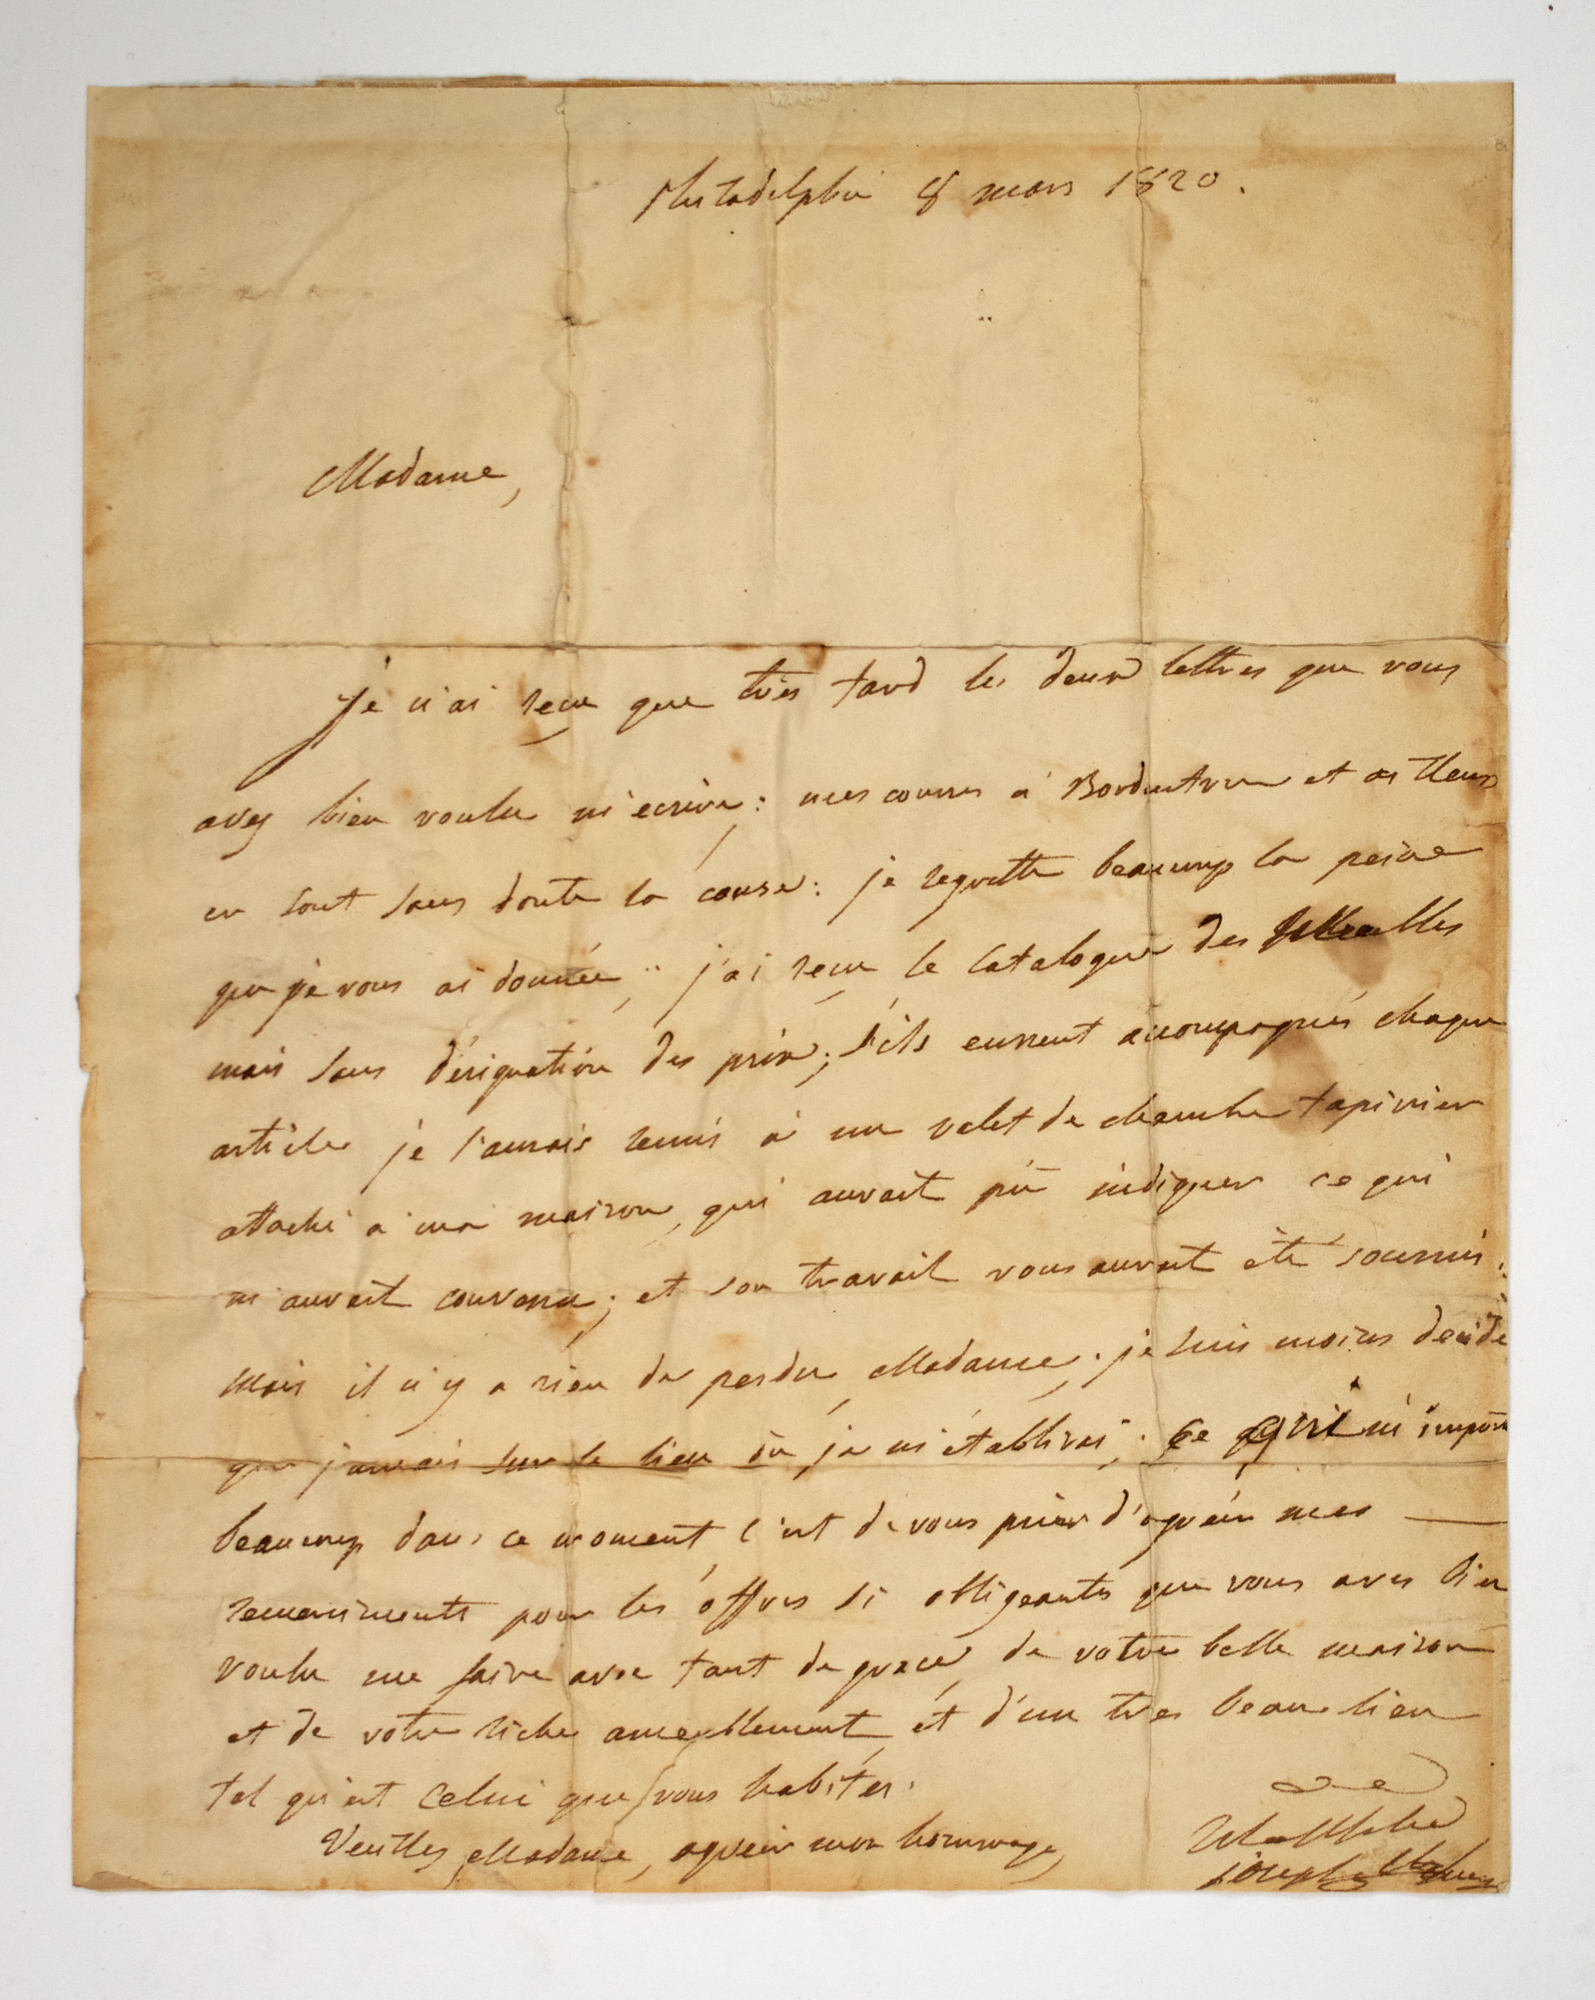 Philadelphie 8 mars 1820.
Madame,
Je n'ai reçu que très tard les deux lettres que vous
avez bien voulu m'ecrire; mes courses à Bordentown et ailleurs
en sont sans doute la cause: je regrette beaucoup la peine
que je vous ai donnée; j'ai reçu le catalogue des Meubles
mais sans désignation des prix; s'ils eussent accompagnés chaque
article je l'aurais remis à un valet de chambre tapissier
attaché à ma maison, qui aurait pû indiquer ce qui
m'aurait convenu; et son travail vous aurait été soumis:
mais il n'y a rien de perdu, Madame, je suis moins decidé
que jamais sur le lieu où je m'établirai; ce qui m'importe
beaucoup dans ce moment, c'est de vous prier d'agréer mes
remerciments pour les offres si obligeantes que vous aves bien
voulu me faire avec tant de grace, de votre belle maison
et de votre riche ameublement, et d'un tres beau lieu
tel qu'est celui que vous habités.
Veuilles, Madame, agréer mon hommage,
Joseph